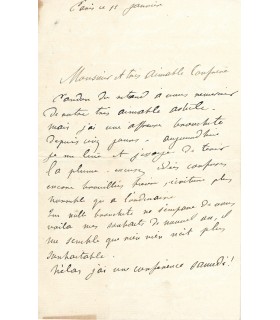 Paris ce 11 janvier
Monsieur et très aimable Confrère
de retard à vous remercier
de votre très aimable article.
mais j'ai une affreuse bronchite
depuis cinq jours. aujourd'hui
je me lève et j'essaye de tenir
la plume. excusez idées confuses
encore brouillées
horrible qu'à l'ordinaire
bronchite ne s'empare de vous
voilà mes souhaits de nouvel an, il
me semble que rien n'est plus
souhaitable.
hélas j'ai une conférence samedi!